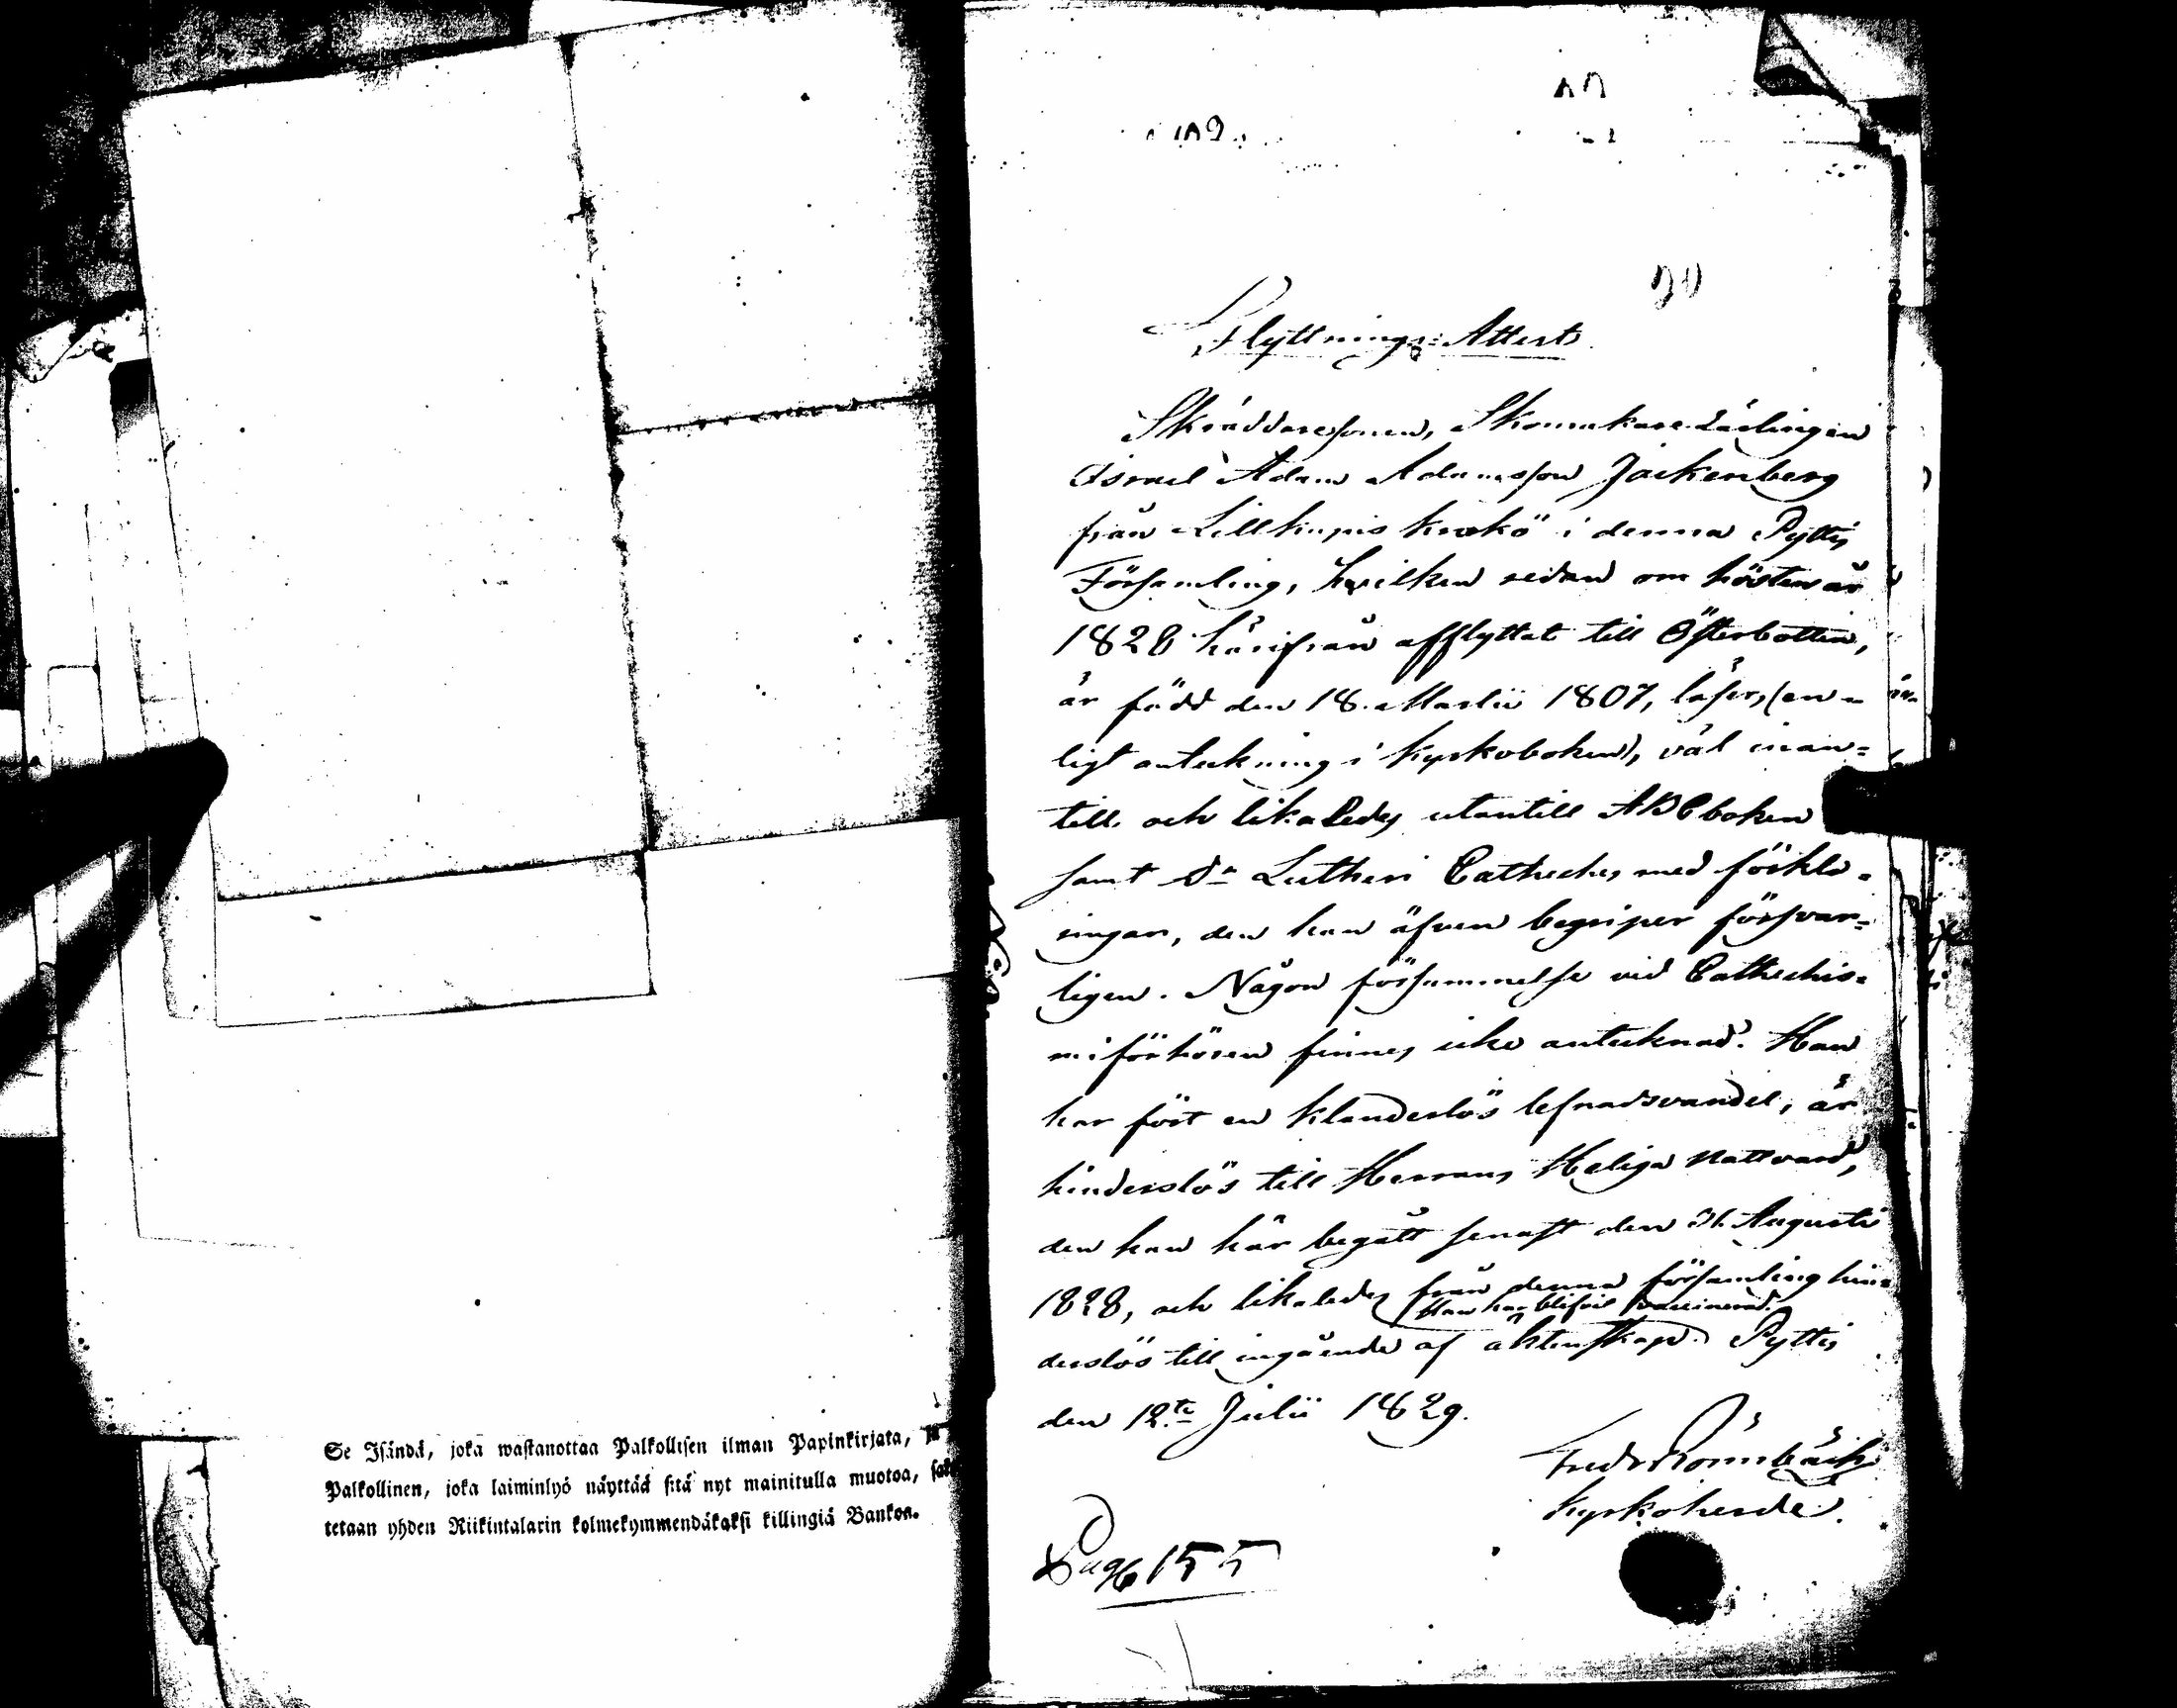 Se Isändä, joka wastanottaa Palkollisen ilman Papinkirjata, ja
Palkollinen, joka laiminlyö näyttää sitä nyt mainitulla muotoa, sako
tetaan yhden Riikintalarin kolmekymmendäkaksi killingiä Bankoa.
30
Flyttnings-Attest.
Skräddaresonen, Skomakare Lärlingen
Israel Adam Adamsson Jackenberg
från Lillkupis krokö i denna Pyttis
Församling, hvilken redan om hösten år
1828 härifrån afflyttat till Österbotten,
är född den 18. Martii 1807, läser, (en=
ligt anteckning i kyrkoboken), väl inan=
till och likaledes utantill ABCboken
samt Dr Lutheri Catheches med förkla=
ringar, den han äfven begriper försvar=
ligen. Någon försummelse vid Cathechis=
miförhören finnes icke antecknad. Han
har fört en klanderlös lefnadsvandel, är
hinderslös till Herrans Heliga Nattvard,
den han här begått senast den 31. Augusti
1828, och likaledes från denna församling hin=
Han har blifvit vaccinerad.
derslös till ingående af äktenskap. Pyttis
den 12.te Julii 1829.
Fredr Rönnbäck
Kyrkoherde.
Pag 155